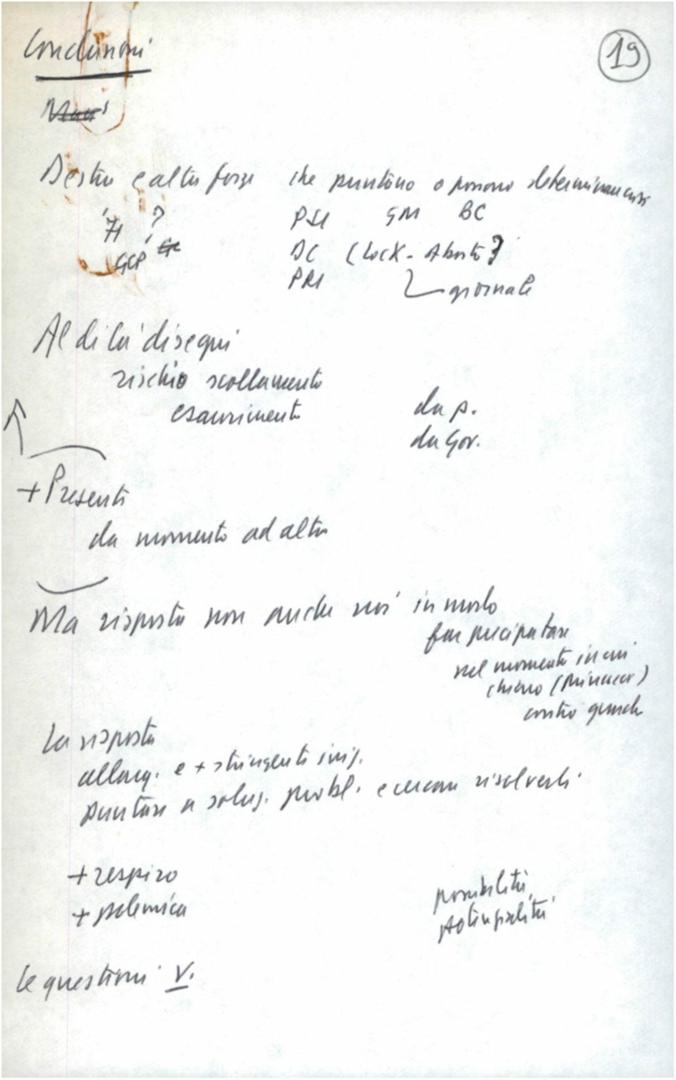 Conclusioni
19
Destre e altre forze che puntano o possono determinare crisi
'71 ? PSI GM BC
GCP DC (Lock - Aborto ?
PRI giornale
Al di là disegni
rischio scollamento
esaurimento da p.
da Gov.
+ Presenti
da momento ad altro
Ma risposta non anche noi in modo
far precipitare
nel momento in cui
contro
La risposta
allarg. e + stringente iniz.
Puntare a soluz. probl. e cercare risolverli
+ respiro possibilità
+ polemica potenzialità
Le questioni V.